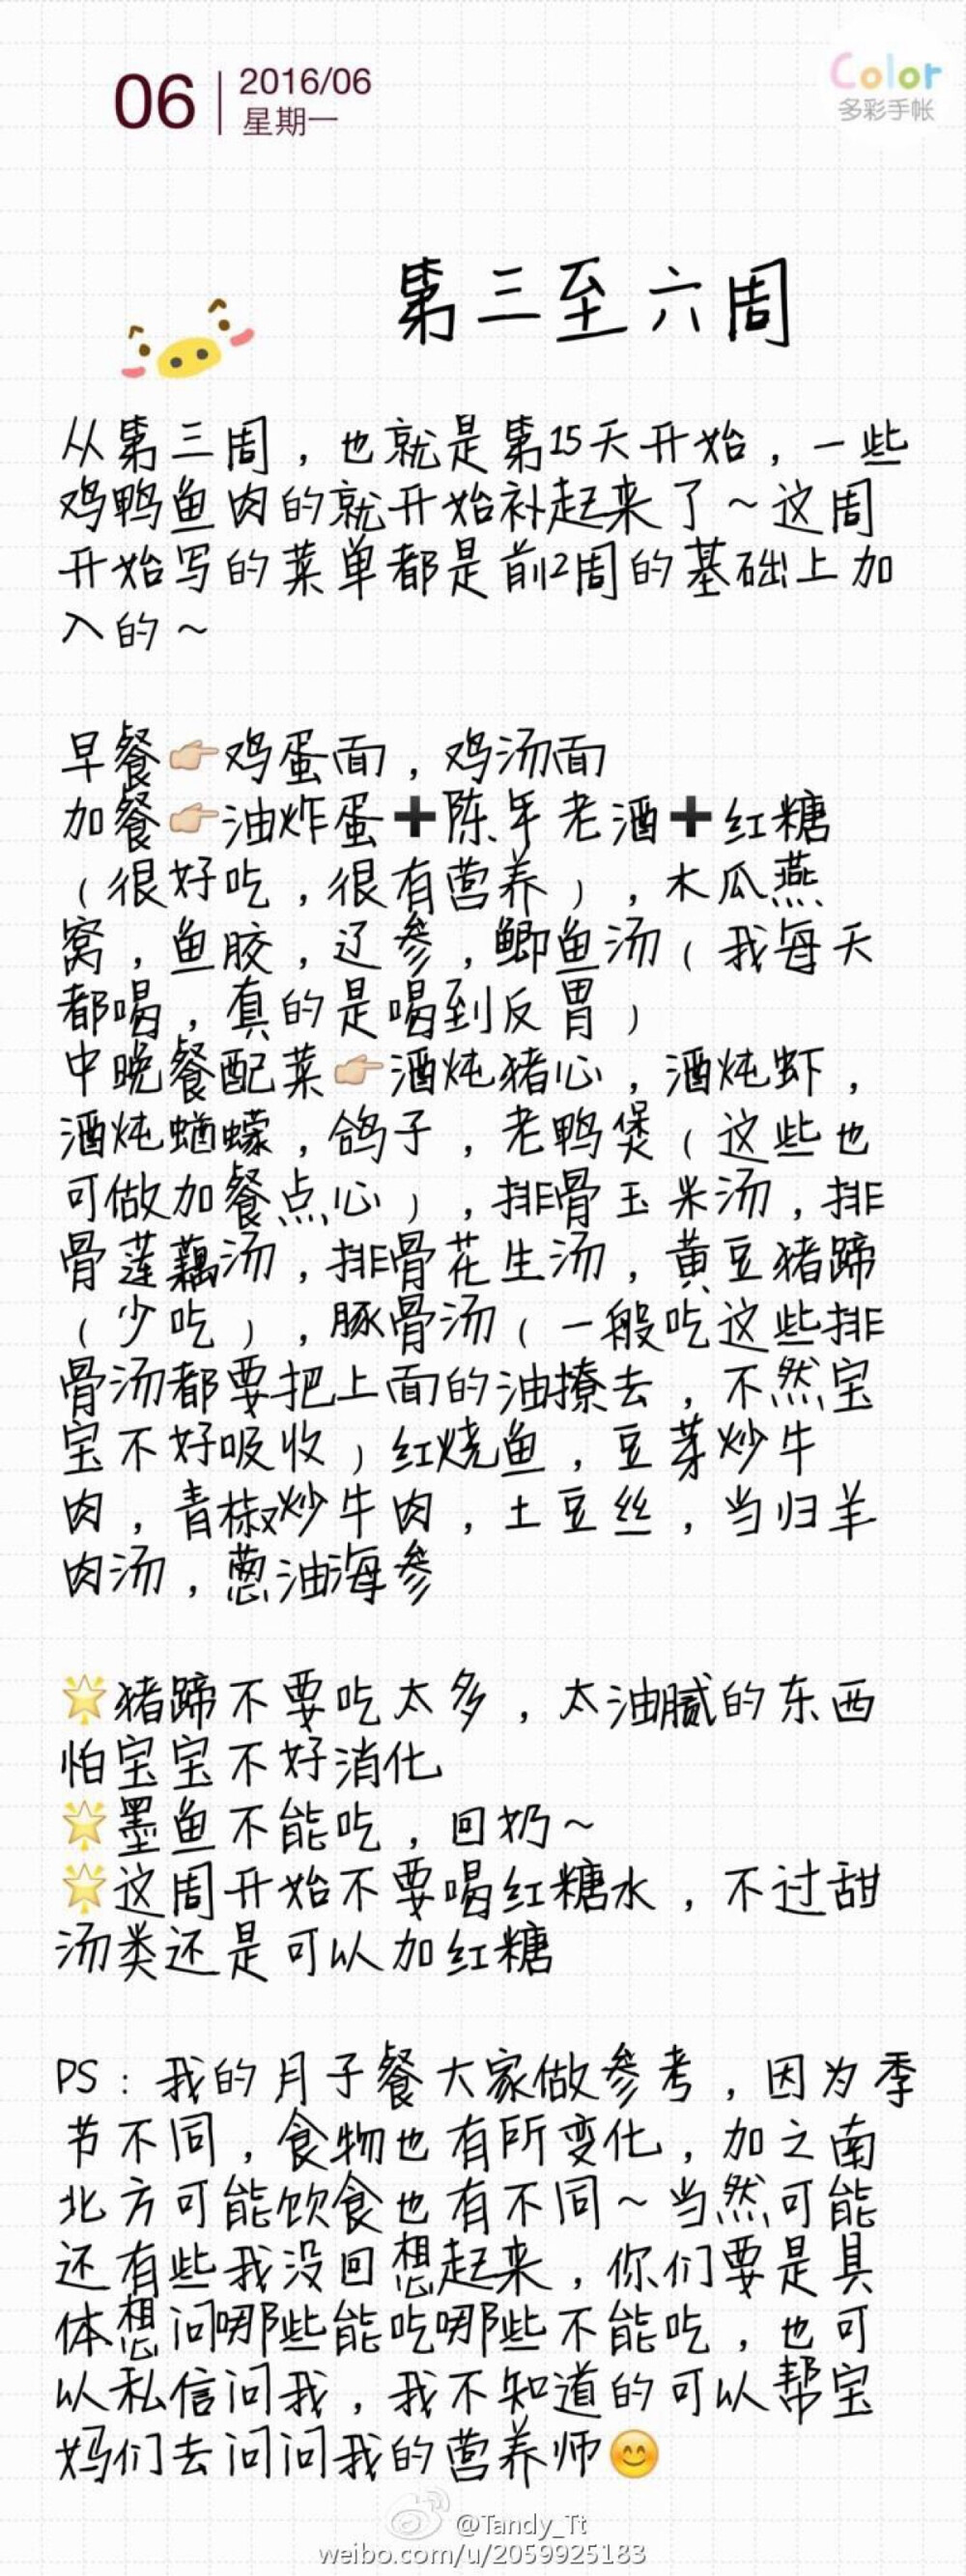 06
2016/06
星期一
Color
多彩手帐
第三至六周
从第三周，也就是第15天开始，一些
鸡鸭鱼肉的就开始补起来了～这周
开始写的菜单都是前2周的基础上加
入的～
早餐👉鸡蛋面，鸡汤面
加餐👉油炸蛋➕陈年老酒➕红糖
（很好吃，很有营养），木瓜燕
窝，鱼胶，辽参，鲫鱼汤（我每天
都喝，真的是喝到反胃）
中晚餐配菜👉酒炖猪心，酒炖虾，
酒炖蝤蠓，鸽子，老鸭煲（这些也
可做加餐点心），排骨玉米汤，排
骨莲藕汤，排骨花生汤，黄豆猪蹄
（少吃），豚骨汤（一般吃这些排
骨汤都要把上面的油撩去，不然宝
宝不好吸收）红烧鱼，豆芽炒牛
肉，青椒炒牛肉，土豆丝，当归羊
肉汤，葱油海参
🌟猪蹄不要吃太多，太油腻的东西
怕宝宝不好消化
🌟墨鱼不能吃，回奶～
🌟这周开始不要喝红糖水，不过甜
汤类还是可以加红糖
PS：我的月子餐大家做参考，因为季
节不同，食物也有所变化，加之南
北方可能饮食也有不同～当然可能
还有些我没回想起来，你们要是具
体想问哪些能吃哪些不能吃，也可
以私信问我，我不知道的可以帮宝
妈们去问问我的营养师😊
@Tandy_Tt
weibo.com/u/2059925183